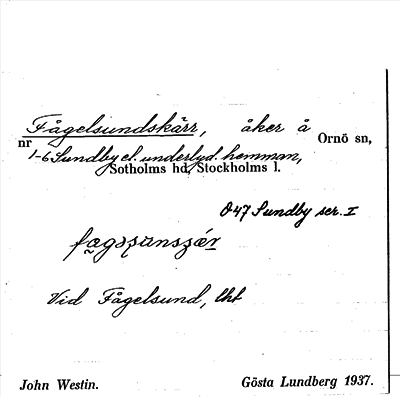 Fågelsundskärr, åker å Ornö sn,
nr 1-6 Sundby el. underlyd. hemman,
Sotholms hd, Stockholms l.
Ö 47 Sundby ser. I
Vid Fågelsund, tht
John Westin. Gösta Lundberg 1937.